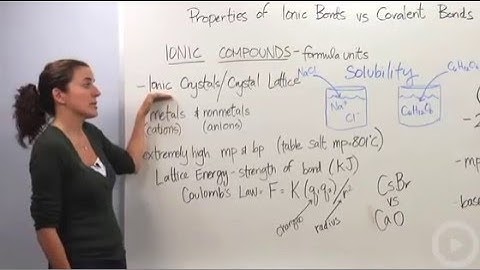 Properties of Ionic Bonds vs Covalent Bonds
IONIC COMPOUNDS - formula units
- Ionic Crystals/Crystal Lattice
metals & nonmetals
(cations) (anions)
extremely high mp & bp (table salt mp=801°C)
Lattice Energy - strength of bond (KJ)
Coulomb's Law = F = K(q₁q₂)/r²
charges
radius
Solubility
NaCl
Na⁺
Cl⁻
C₆H₁₂O₆
C₆H₁₂O₆
CsBr
vs
CaO
(
- 2
- mp
- base